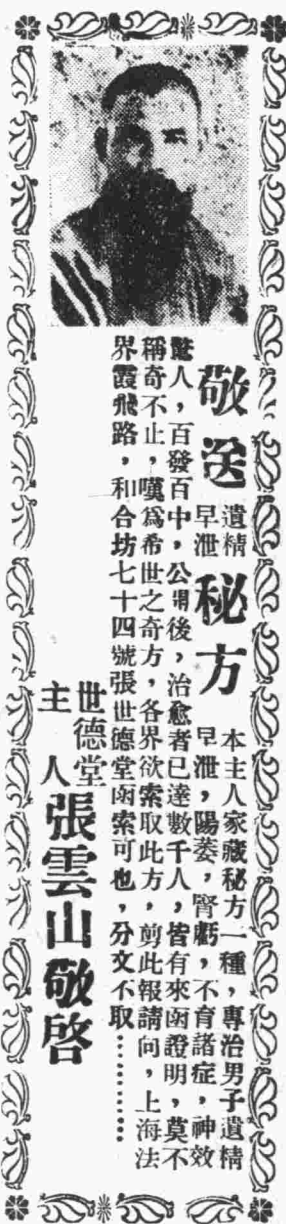 敬送遺精早泄秘方
本主人家藏秘方一種，專治男子遺精
早泄，陽萎，腎虧，不育諸症，神效
驚人，百發百中，公開後，治愈者已達數千人，皆有來函證明，莫不
稱奇不止，嘆為希世之奇方，各界欲索取此方，剪此報請向，上海法
界霞飛路，和合坊七十四號張世德堂函索可也，分文不取………
世德堂主人張雲山敬啓